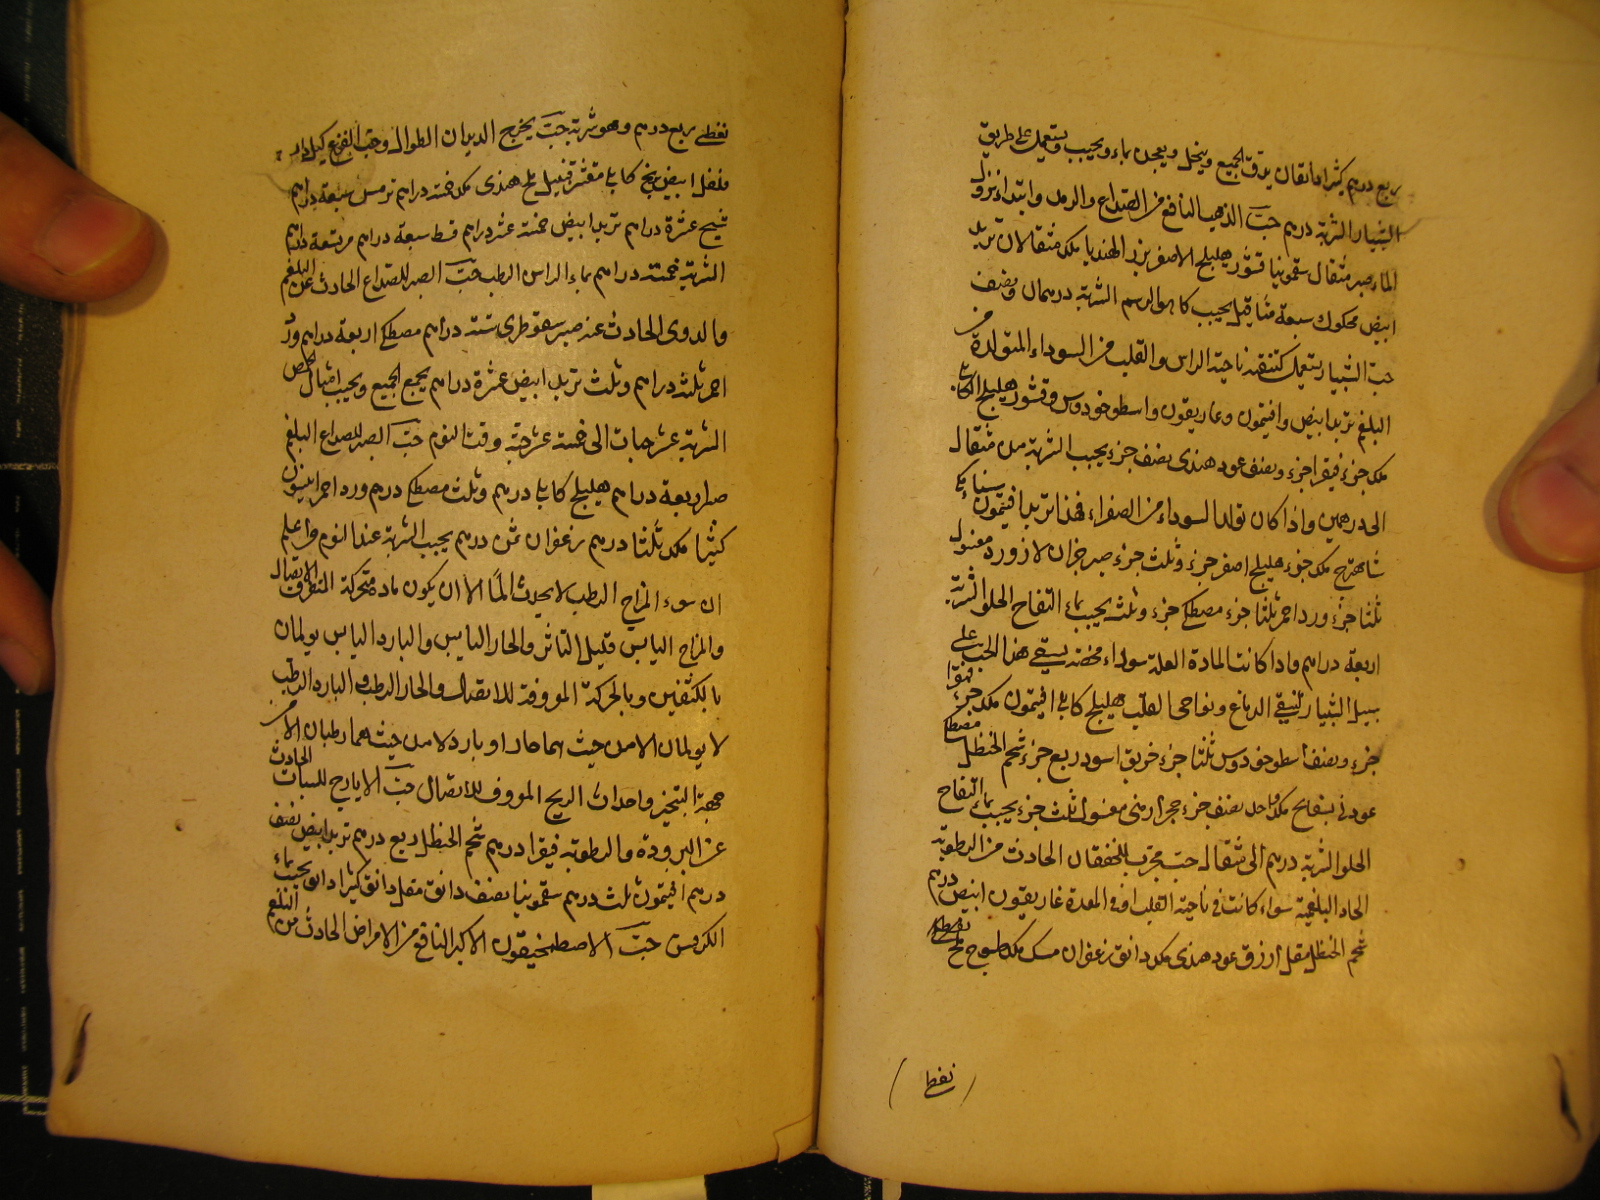 ربع درهم كثيرا دانقان يدق الجميع وينخل ويعجن بماء ويحبب ويستعمل على طريق
الشبيار الشربة درهم حب الذهب النافع من الصداع والرمد وابتداء نزول
الماء صبر مثقال سقمونيا قشور هليلج الاصفر بزر الهندبا مكد مثقالان تربد
ابيض محكوك سبعة مثاقيل يحبب كما هو الرسم الشربة درهمان ونصف
حب الشبيار يستعمل لتنقية ناحية الراس والقلب من السوداء المتولدة من
البلغم تربد ابيض وافتيمون وغاريقون واسطوخودوس وقشور هليلج الكابلي
مكد جزء فيقرا جزء ونصف عود هندى نصف جزء يحبب الشربة من مثقال
الى درهمين واذا كان تولد السوداء من الصفراء فخذ تربد افتيمون سنا مكى
شاهترج مكد جزء هليلج اصفر جزء وثلث جزء صبر جزءان لازورد مغسول
ثلثا جزء ورد احمر ثلثا جزء مصطكى جزء وثلث يحبب بماء التفاح الحلو الشربة
اربعة دراهم واذا كانت المادة العلة سوداء محضة يسقى هذا الحب على
سبيل الشبيار لينقى الدماغ ونواحى القلب هليلج كابلى افتيمون مكد جزء فيقرا
جزء ونصف اسطوخودوس ثلثا جزء خربق اسود ربع جزء شحم الحنظل مصطكى
عود نى بسفايج مكد واحد نصف جزء حجر ارمنى مغسول ثلث جزء يحبب بماء التفاح
الحلو الشربة درهم الى مثقال حب مجرب للخفقان الحادث من الرطوبة
الحادة البلغمية سواء كانت فى ناحية القلب او فى المعدة غاريقون ابيض درهم
شحم الحنظل مقل ازرق عود هندى مكد دانق زعفران مسك مكد طسوج ملح نفطى
نفطى
نفطى ربع درهم وهو شربة حب يخرج الديدان الطوال وحب القرع كيل دار
فلفل ابيض برنج كابلى مقشر قنبيل ملح هندى مكد خمسة دراهم ترمس سبعة دراهم
شيح عشرة دراهم تربد ابيض خمسة عشر دراهم قسط سبعة دراهم سبعة دراهم
الشربة خمسة دراهم بماء الراس الرطب حب الصبر للصداع الحادث عن البلغم
والدوى الحادث عنه صبر سقوطرى ستة دراهم مصطكى اربعة دراهم ورد
احمر ثلثة دراهم وثلث تربد ابيض عشرة دراهم يجمع الجميع ويحبب امثال الحمص
الشربة عشر حبات الى خمسة عشر حبة وقت النوم حب الصبر للصداع البلغم
صبر اربعة دراهم هليلج كابلى درهم وثلث مصطكى درهم ورد احمر انيسون
كثيرا مكد ثلثا درهم زعفران ثمن درهم يحبب الشربة عند النوم واعلم
ان سوء المزاج الرطب لا يحدث الما الا ان يكون مادة متحركة التفرق الاتصال
والمزاج اليابس قليل التاثر والحار اليابس والبارد اليابس يولمان
بالكثفين وبالحركة الموفقة للاتصال والحار الرطب والبارد الرطب
لا يولمان الا من حيث هما حار او بارد لا من حيث هما رطبان الا من
جهة التبخير واحداث الريح المفرق للاتصال حب الايارج للسبات الحادث
عن البرودة والرطوبة فيقرا درهم شحم الحنظل ربع درهم تربد ابيض نصف
درهم افتيمون ثلث درهم سقمونيا نصف دانق مقل دانق كثيرا دانق يحبب بماء
الكرفس حب الاصطمخيقون الاكبر النافع من الامراض الحادث من البلغم